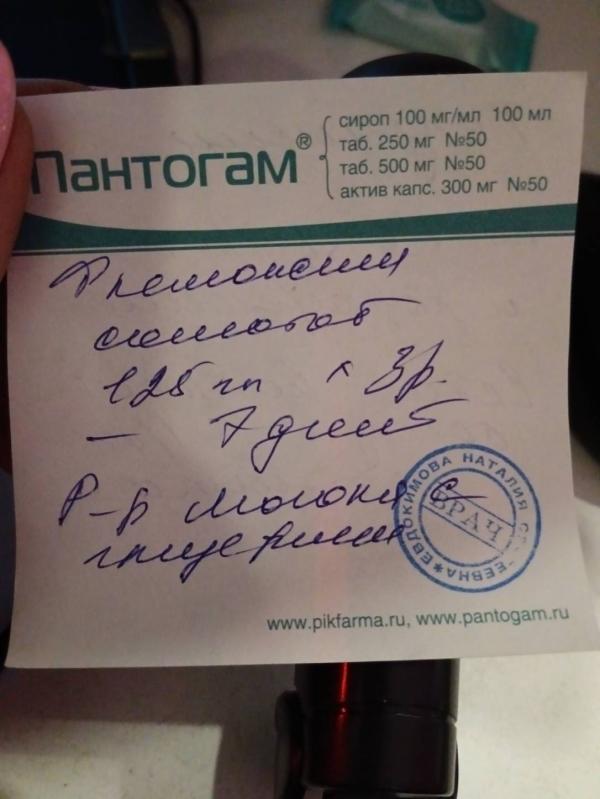 Пантогам®
сироп 100 мг/мл 100 мл
таб. 250 мг №50
таб. 500 мг №50
актив капс. 300 мг №50
Флемоксин
солютаб
125 мг х 3 р.
– 7 дней
Р-р Люголя с
глицерином
ЕВДОКИМОВА НАТАЛИЯ СЕРГЕЕВНА*
ВРАЧ
www.pikfarma.ru, www.pantogam.ru